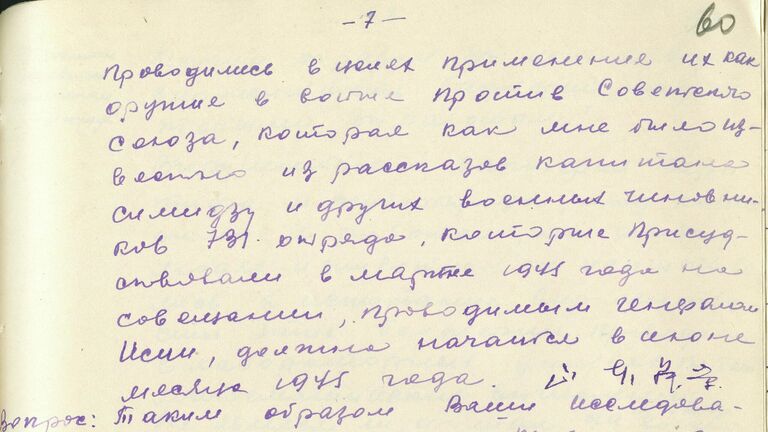 — 7 —
60
проводились в целях применение их как
оружие в войне против Советского
Союза, которая как мне было из-
вестно из рассказов капитана
Симидзу и других военных чиновни-
ков 731. отряда, которые присуд-
ствовали в марте 1945 года на
совещании, проводимым генералом
Исии, должна начаться в июне
месяце 1945 года.
Вопрос: Таким образом Ваши исследова-